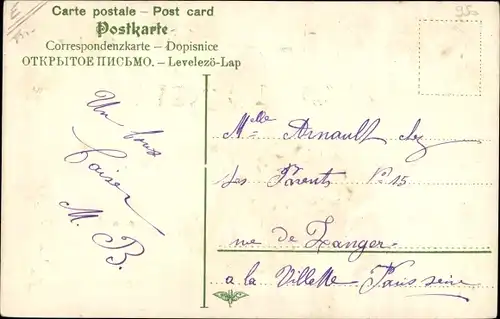 Carte postale – Post card
Postkarte
Correspondenzkarte – Dopisnice
ОТКРЫТОЕ ПИСЬМО. – Levelezö-Lap
950
Un bons
baiser
M. B.
Melle Arnault chez
ses Parents No 15
rue de Tanger
a la Villette Paris seine